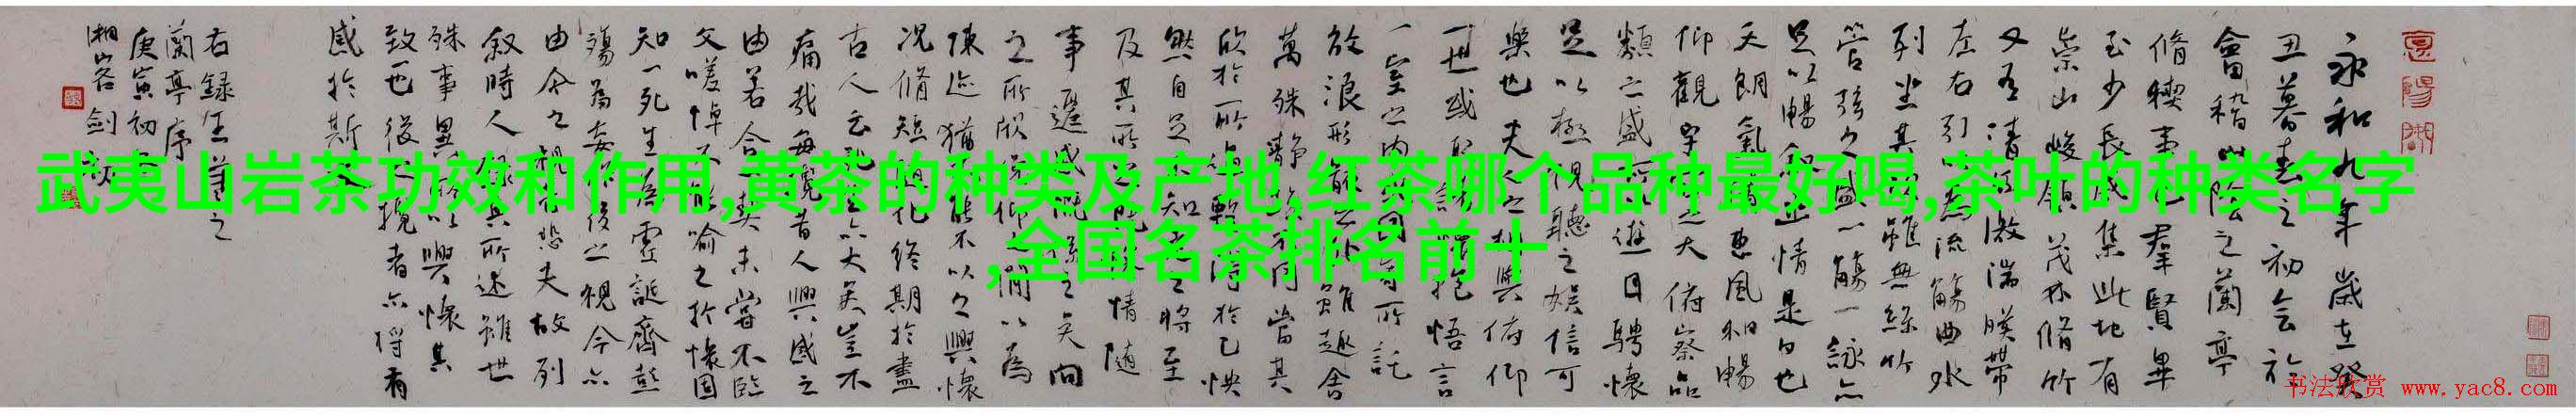 武夷山岩茶功效和作用,黄茶的种类及产地,红茶哪个品种最好喝,茶叶的种类名字
,全国名茶排名前十
永和九年歲在癸
丑暮春之初會於
會稽山陰之蘭亭
脩稧事也羣賢畢
至少長咸集此地有
崇山峻領茂林脩竹
又有清流激湍暎帶
左右引以為流觴曲水
列坐其次雖無絲竹
管弦之盛一觴一詠亦
足以暢敘幽情是日也
天朗氣清惠風和暢
仰觀宇宙之大俯察品
類之盛所以遊目騁懷
足以極視聽之娛信可
樂也夫人之相與俯仰
一世或取諸懷抱悟言
一室之內或因寄所託
放浪形骸之外雖趣舍
萬殊靜躁不同當其
欣於所遇輒得於己怏
然自足不知老之將至
及其所之既惓情隨
事遷感慨係之矣向
之所欣俛仰之間以為
陳迹猶不能不以之興懷
況脩短隨化終期於盡
古人云死生亦大矣豈不
痛哉每攬昔人興感之
由若合一契未嘗不臨
文嗟悼不能喻之於懷固
知一死生為虛誕齊彭
殤為妄作後之視今亦
由今之視昔悲夫故列
叙時人錄其所述雖世
殊事異所以興懷其
致一也後之攬者亦將有
感於斯文
右録王羲之
蘭亭序
庚寅初
湘客劍
书法欣赏 www.yac8.com